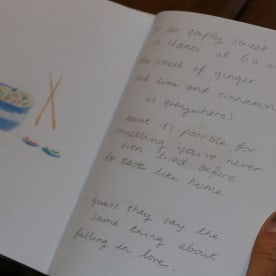 an empty street
in Hanoi at 6 a.m
the smell of ginger
and lime and cinnamon
is everywhere)
it's possible for
something you've never
even tried before
to taste like home.
guess they say the
same thing about
falling in love.